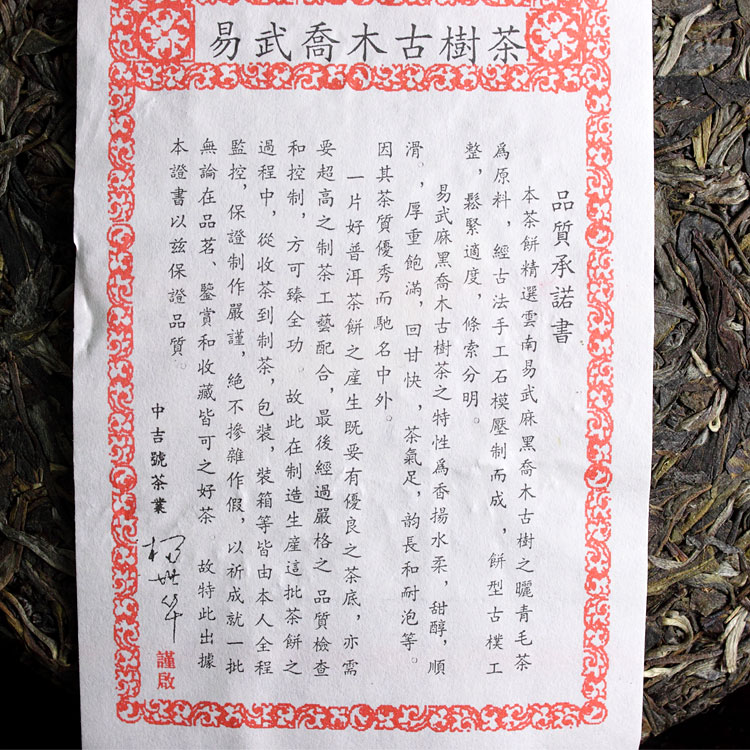 易武喬木古樹茶
品質承諾書
本茶餅精選雲南易武麻黑喬木古樹之曬青毛茶
爲原料，經古法手工石模壓制而成，餅型古樸工
整，鬆緊適度，條索分明。
易武麻黑喬木古樹茶之特性爲香揚水柔，甜醇，順
滑。，厚重飽滿，回甘快，茶氣足，韵長和耐泡等。
因其茶質優秀而馳名中外。
一片好普洱茶餅之産生既要有優良之茶底，亦需
要超高之制茶工藝配合，最後經過嚴格之品質檢查
和控制，方可臻全功。故此在制造生産這批茶餅之
過程中，從收茶到制茶，包裝，裝箱等皆由本人全程
監控，保證制作嚴謹，絕不摻雜作假，以祈成就一批
無論在品茗、鑒賞和收藏皆可之好茶。故特此出據
本證書以兹保證品質。
中吉號茶業
謹啟